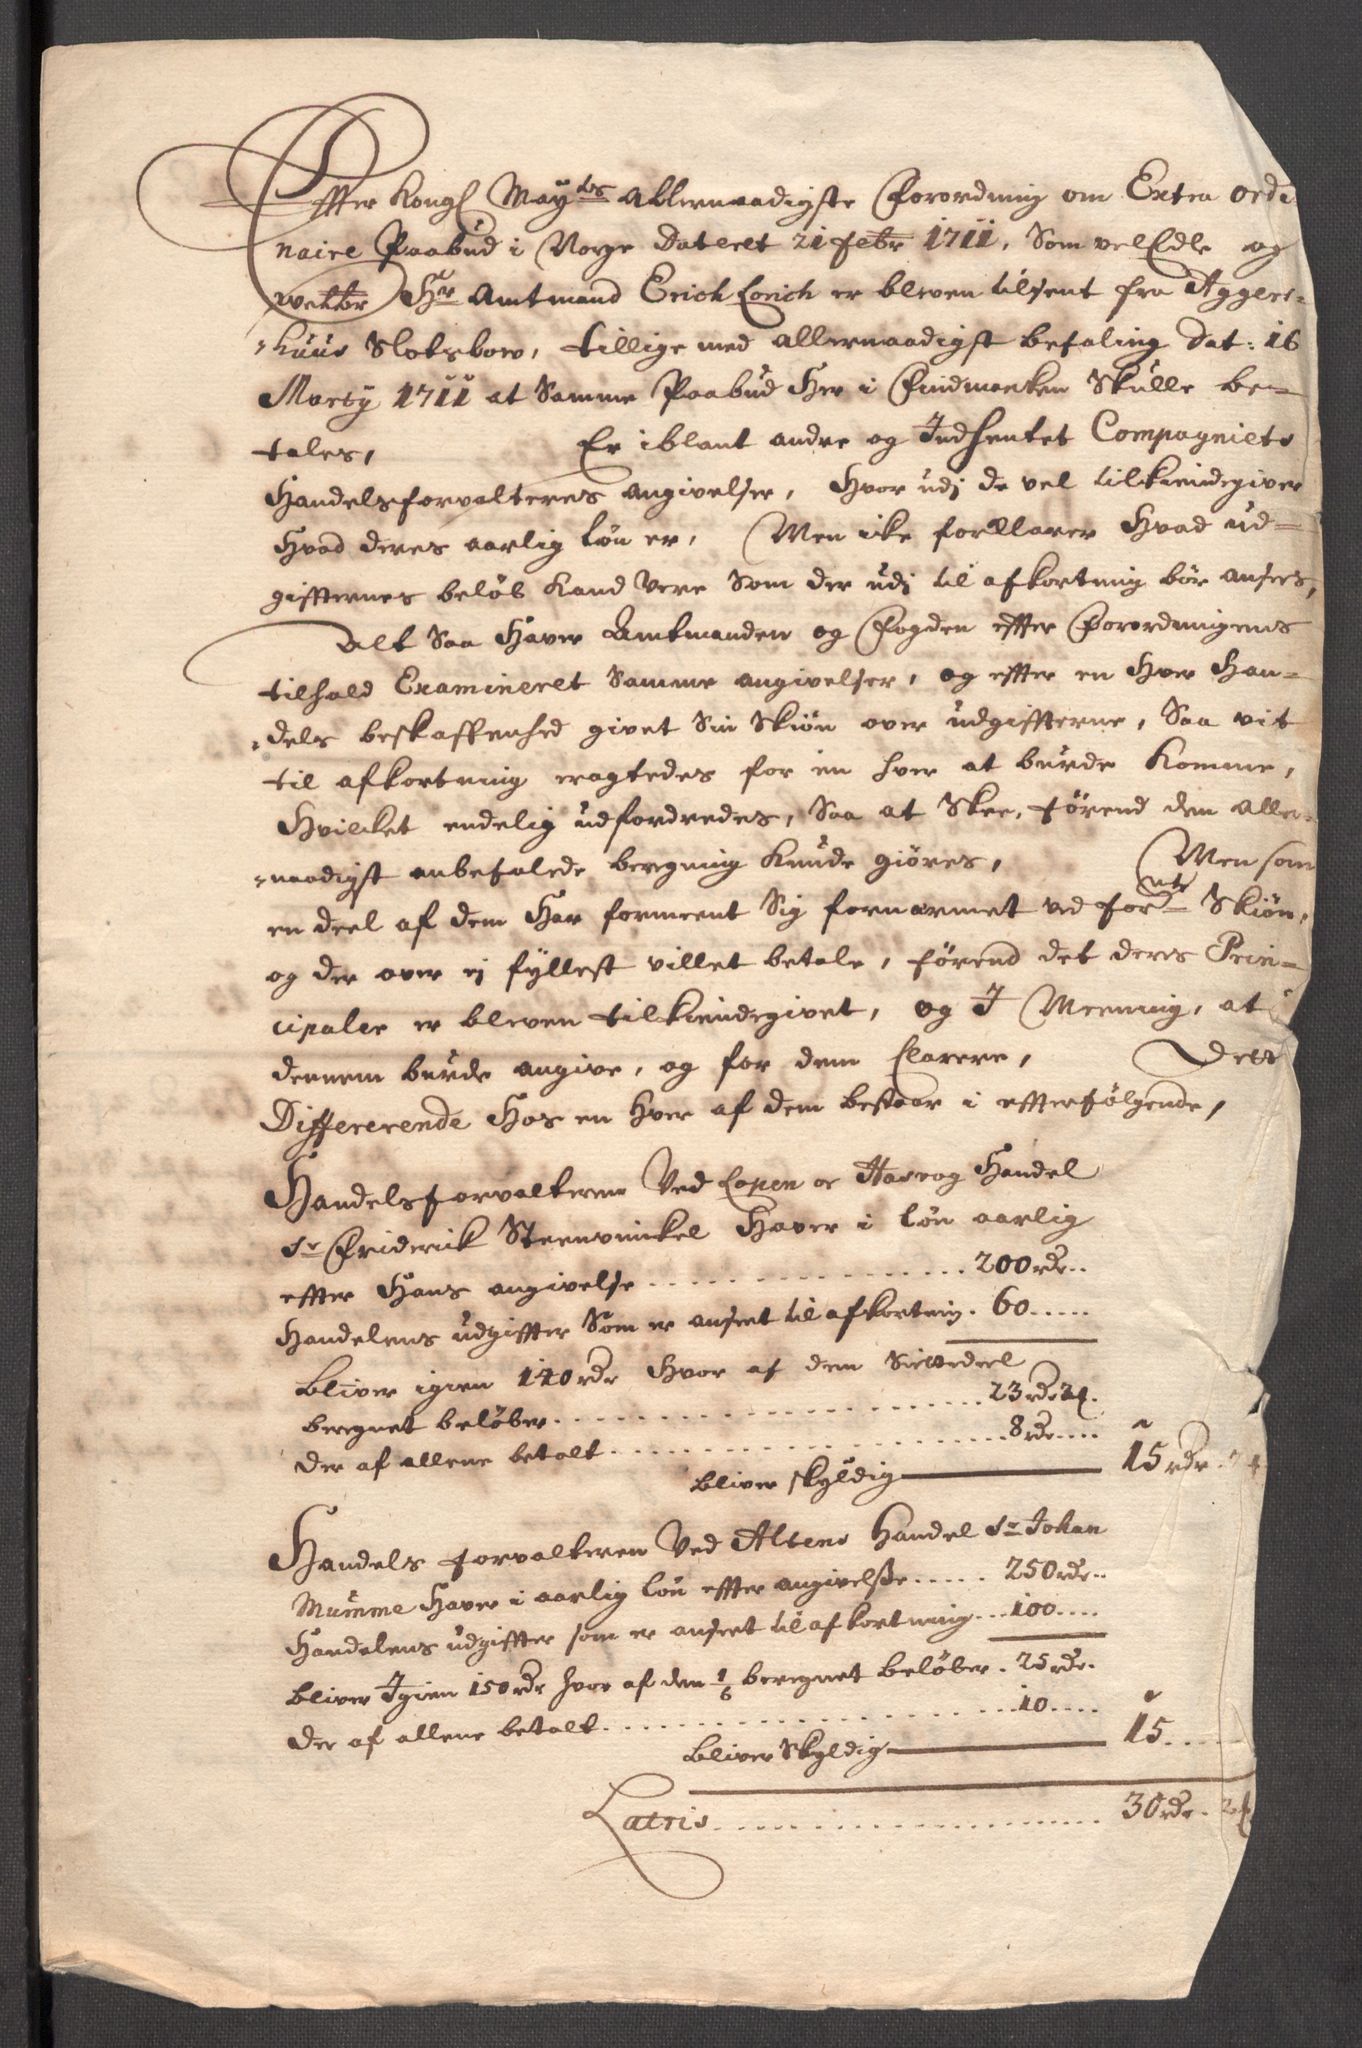 Effter Kongl Mayts Allernaadigste Forordning om Extra ordi
naire Paabud i Norge dateret 21 Febr 1711, Som velEdle og
velbr Hr Amtmand Erich Lorich er bleven tilsent fra Agger-
-huus Slotsbow, tillige med allernaadigst befaling dat: 16
Marty 1711 at Samme Paabud Her i Findmarken Skulle be-
tales, Er iblant andre og Indhentet Compagniets
Handelsforvalteres angivelser, Hvor udj de vel tilkiendegiver
Hvad deres aarlig løn er, Men icke forklarer Hvad ud-
giffternes beløb kand Vere Som der udj til afkortning bør ansees,
Alt Saa Haver Amtmanden og Fogden effter Forordningens
tilhold Examineret Samme angivelser, og effter en Hver Han-
-dels beskaffenhed givet Sin Skiøn over udgiffterne, Saa vit
til afkortning eragtedes for en hver at burde komme,
Hvilcket endelig udfordredes, Saa at Skee, førend den aller-
-naadigst anbefalede beregning kunde giøres, Men som
en deel af dem Har formeent Sig fornærmet ved fornte Skiøn,
og der over ej fyllest villet betale, førend det deris Prin-
cipaler er bleven tilkiendegivet, og I Meening, at
dennem burde angive, og for dem Clarere, Dett
Differerende Hos en Hver af dem bestaar i effterfølgende,
Handelsforvalteren Ved Lopen oc Hasvog Handel
Sr Friderick Steenvinkel Haver i løn aarlig
effter Hans angivelse . . . 200 rdr..
Handelens udgiffter Som er anseet til afkortning. 60 . . .
bliver igien 140 rdr Hvor af den Siettedeel
beregnet beløber . . . 23 rdr 2 ₰.
der af allene betalt . . . 8 rdr . . .
bliver skyldig — 15 rdr. 2 ₰
Handels forvalteren Ved Altens Handel Sr Johan
Mumme Haver i aarlig løn effter angivelße . . . 250 rdr..
Handelens udgiffter som er anseet til afkortning . . . 100 . . .
bliver Igien 150 rdr hvor af den 1/6 beregnet beløber . 25 rdr.
der af allene betalt . . . 10 . . .
bliver Skyldig — 15 . . .
Latris . . . 30 rdr. 2 ₰